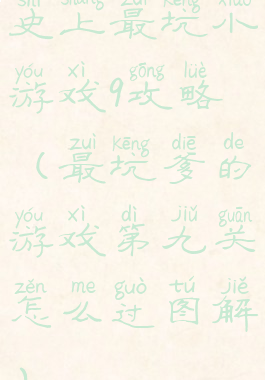 shǐ shàng zuì kēng xiǎo
史上最坑小
yóu xì gōng lüè
游戏9攻略
zuì kēng diē de
（最坑爹的
yóu xì dì jiǔ guān
游戏第九关
zěn me guò tú jiě
怎么过图解
）